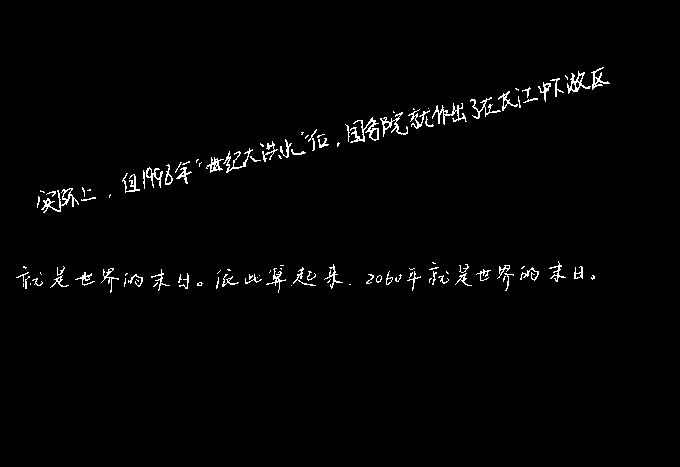 实际上，自1998年“世纪大洪水”后，国务院就作出了在长江中下游区
就是世界的末日。依此算起来，2060年就是世界的末日。